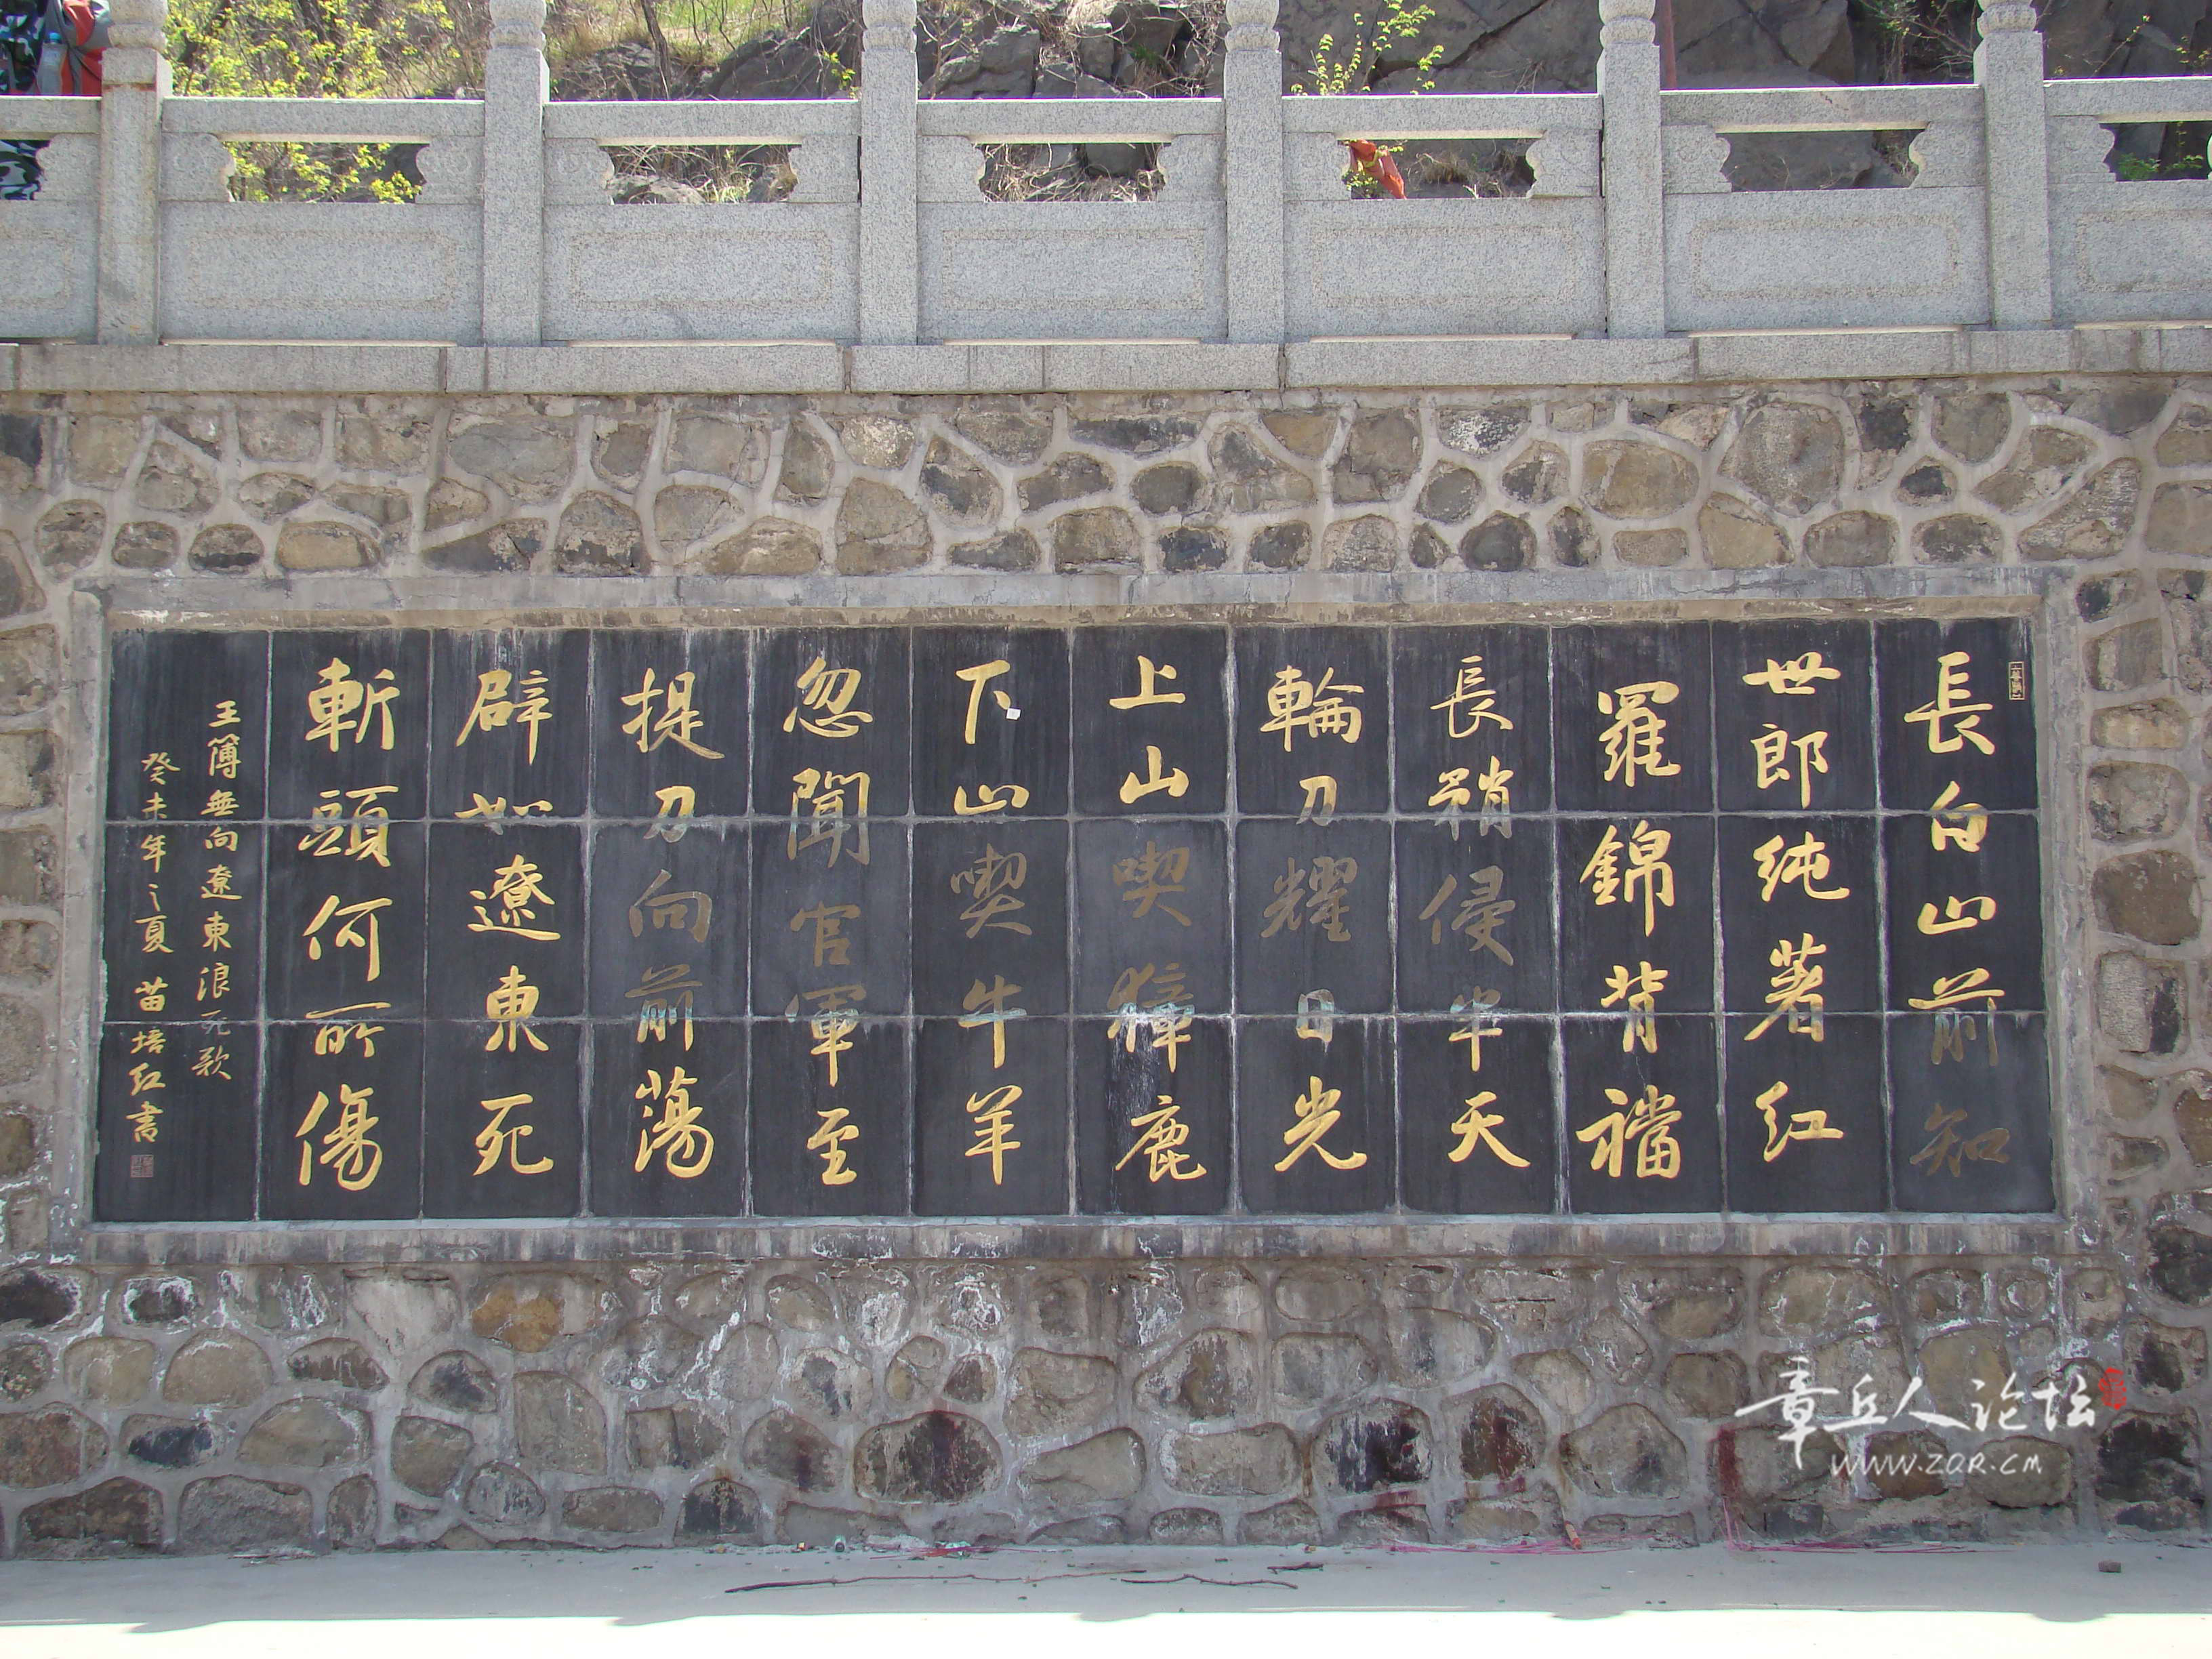 長白山前知
世郎純著紅
羅錦背襠
長矟侵半天
輪刀耀日光
上山喫獐鹿
下山喫牛羊
忽聞官軍至
提刀向前蕩
辟如遼東死
斬頭何所傷
王簿無向遼東浪死歌
癸未年之夏 苗培红書
章丘人论坛
WWW.ZQR.CM